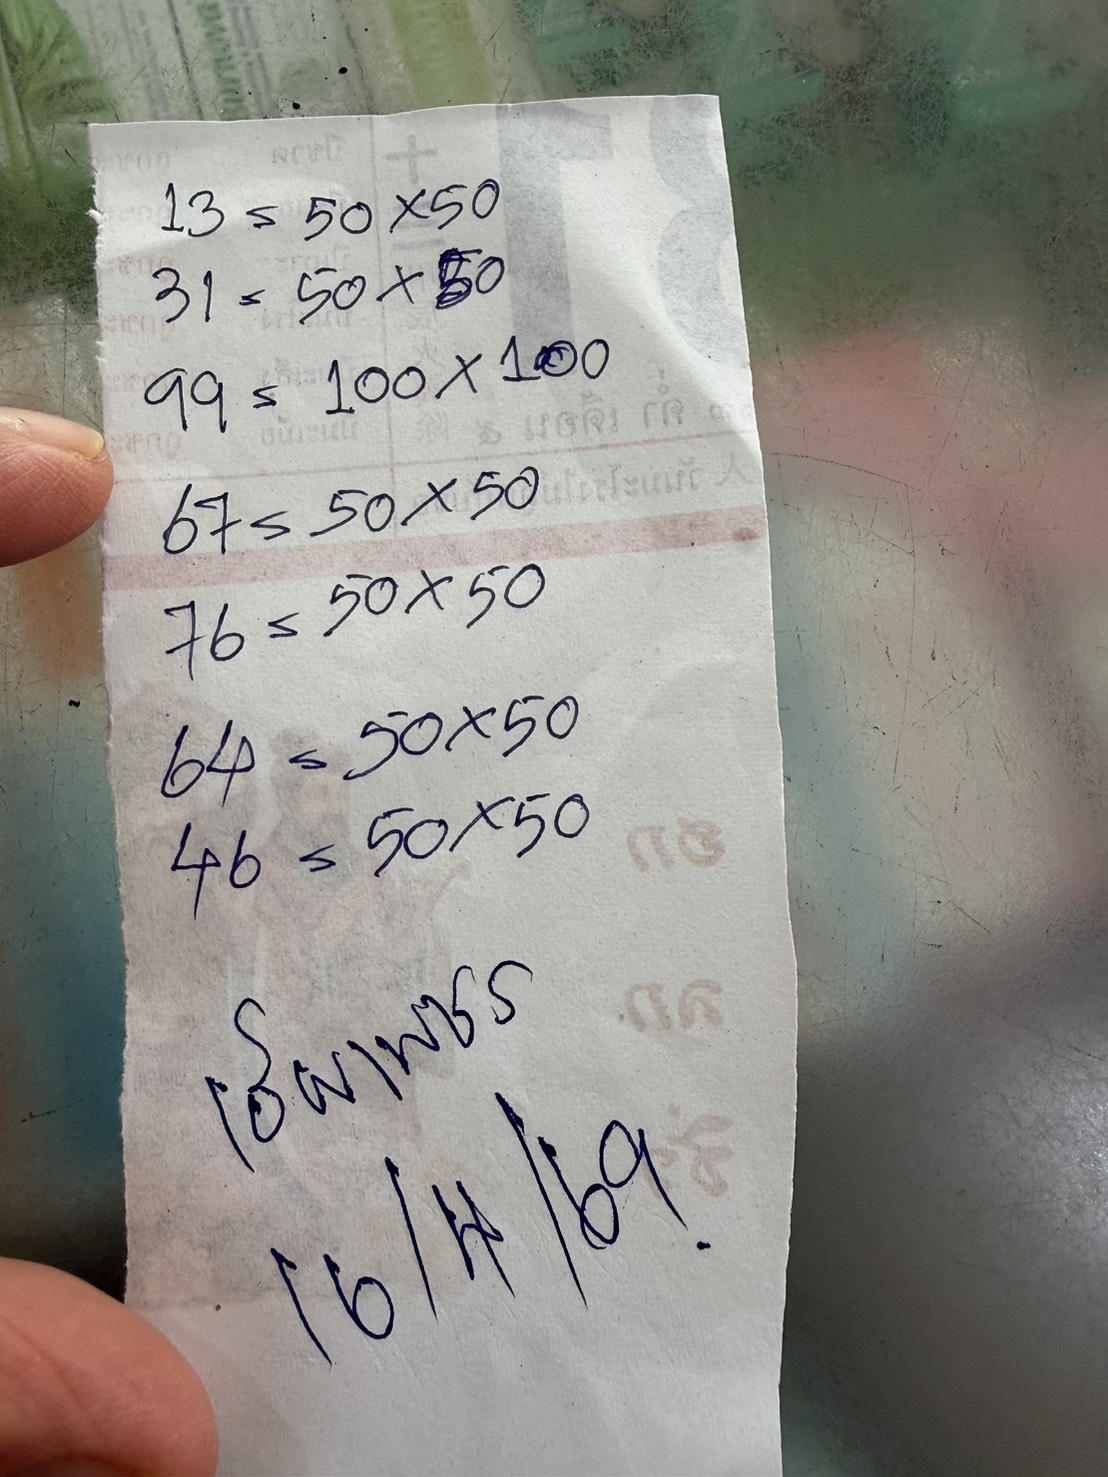 13 = 50 x 50
31 = 50 x 50
99 = 100 x 100
67 = 50 x 50
76 = 50 x 50
64 = 50 x 50
46 = 50 x 50
16/4/69.